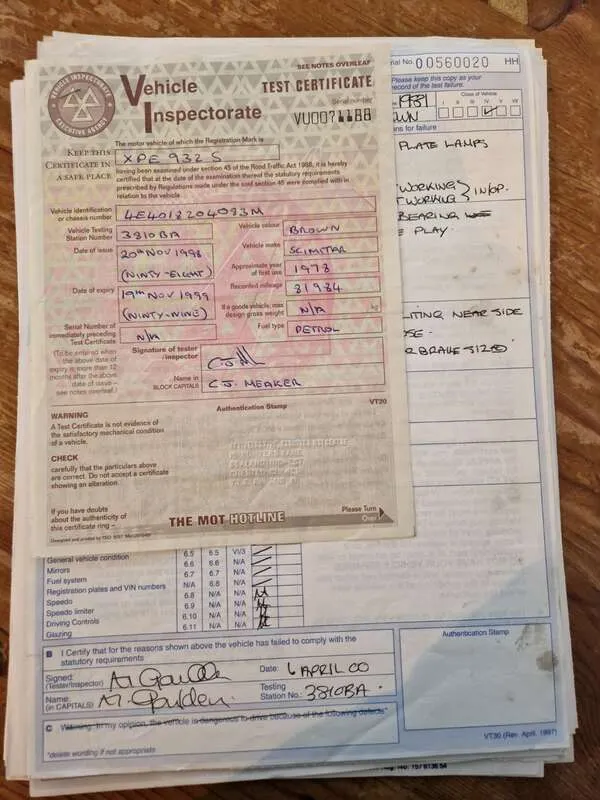 SEE NOTES OVERLEAF
VEHICLE INSPECTORATE
EXECUTIVE AGENCY
Vehicle
Inspectorate
TEST CERTIFICATE
Serial number
KEEP THIS
CERTIFICATE IN
A SAFE PLACE
The motor vehicle of which the Registration Mark is
XPE 932 S
having been examined under section 45 of the Road Traffic Act 1988, it is hereby
certified that at the date of the examination thereof the statutory requirements
prescribed by Regulations made under the said section 45 were complied with in
relation to the vehicle.
Vehicle identification
or chassis number
4E4018204093M
Vehicle Testing
Station Number
3810BA
Vehicle colour
BROWN
Date of issue
20th NOV 1998
(NINTY-EIGHT)
Vehicle make
SCIMITAR
Approximate year
of first use
1978
Date of expiry
19th NOV 1999
(NINTY-NINE)
Recorded mileage
81984
If a goods vehicle, max
design gross weight
N/A
Serial Number of
immediately preceding
Test Certificate
N/A
Fuel type
PETROL
(To be entered
when the above date
of expiry is more than 12
months after the above
date of issue –
see notes overleaf.)
Signature of tester
/inspector
Name in
BLOCK CAPITALS
C.J. MEAKER
Authentication Stamp
VT20
WARNING
A Test Certificate is not evidence of
the satisfactory mechanical condition
of a vehicle.
CHECK
carefully that the particulars above
are correct. Do not accept a certificate
showing an alteration.
If you have doubts
about the authenticity of
this certificate ring –
THE MOT HOTLINE
Please Turn
Over
ial No. 00560020 HH
Please keep this copy as your
record of the test failure.
Class of Vehicle
I II III IV V VII
ns for failure
PLATE LAMPS
WORKING
INOP.
BEARING
PLAY.
NEAR SIDE
General vehicle condition 6.5 6.5 VI/3
Mirrors 6.6 6.6 N/A
Fuel system 6.7 6.7 N/A
Registration plates and VIN numbers N/A 6.8 N/A
Speedo 6.8 N/A N/A
Speed limiter 6.9 N/A N/A
Driving Controls 6.10 N/A N/A
Glazing 6.11 N/A N/A
B I Certify that for the reasons shown above the vehicle has failed to comply with the
statutory requirements
Signed:
(Tester/Inspector)
Date: 6 APRIL 00
Name:
(in CAPITALS)
Testing
Station No.: 3810BA
Authentication Stamp
C Warning: In my opinion, the vehicle is dangerous to drive because of the following defects*
*delete wording if not appropriate
VT30 (Rev. April, 1997)